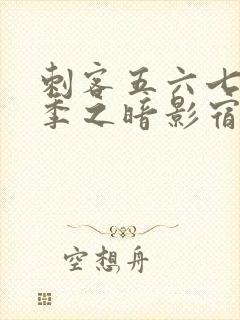 刺客五六七
季之暗影宿
空想舟